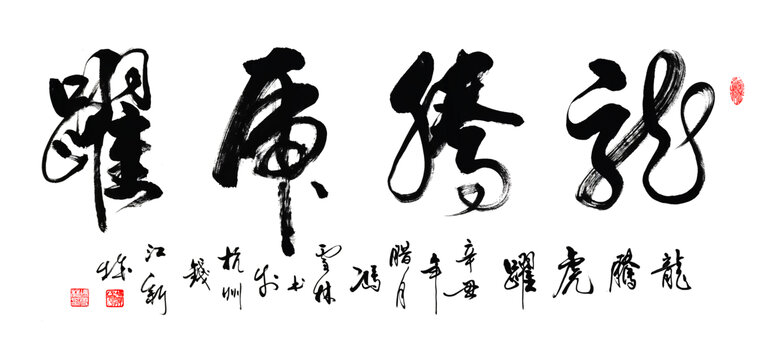 龍騰虎躍
龍騰虎躍
辛丑年臘月馮雲林書於杭州錢江新城